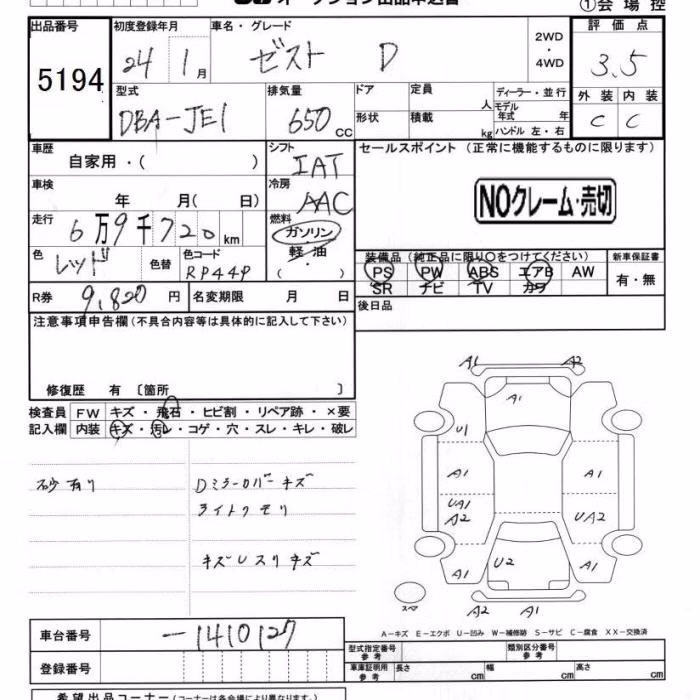 オークション出品申込書
①会場控
出品番号 初度登録年月 車名・グレード 評価点
5194 24 1月 ゼスト D 2WD・4WD 3.5
型式 排気量 ドア 定員 人 ディーラー・並行 外装 内装
DBA-JE1 650 cc 形状 積載 kg モデル年式 年 ハンドル 左・右 C C
車歴 自家用・( ) シフト セールスポイント (正常に機能するものに限ります)
IAT
車検 年 月( 日) 冷房 AAC NOクレーム・売切
走行 6万9千720km 燃料 ガソリン
軽油
( )
色 レッド 色替 色コード RP44P
装備品(純正品に限り○をつけてください) 新車保証書
PS PW ABS エアB AW 有・無
SR ナビ TV カワ
R券 9,820円 名変期限 月 日 後日品
注意事項申告欄(不具合内容等は具体的に記入して下さい)
修復歴 有 〔箇所 〕
検査員 FW キズ・飛石・ヒビ割・リペア跡・×要
記入欄 内装 キズ・汚レ・コゲ・穴・スレ・キレ・破レ
砂有り Dミラーカバーキズ
ライトクモリ
キズUスリキズ
A1 A2
A1
U1
A1 A1
UA1
A2 UA2
A1 U2 A1
スペア A2 A1
A-キズ E-エクボ U-凹み W-補修跡 S-サビ C-腐食 XX-交換済
車台番号 -1410127
型式指定番号 参考 類別区分番号 参考
登録番号 車庫証明用 参考 長さ cm 幅 cm 高さ cm
希望出品コーナー(コーナーは各会場により異なります。)